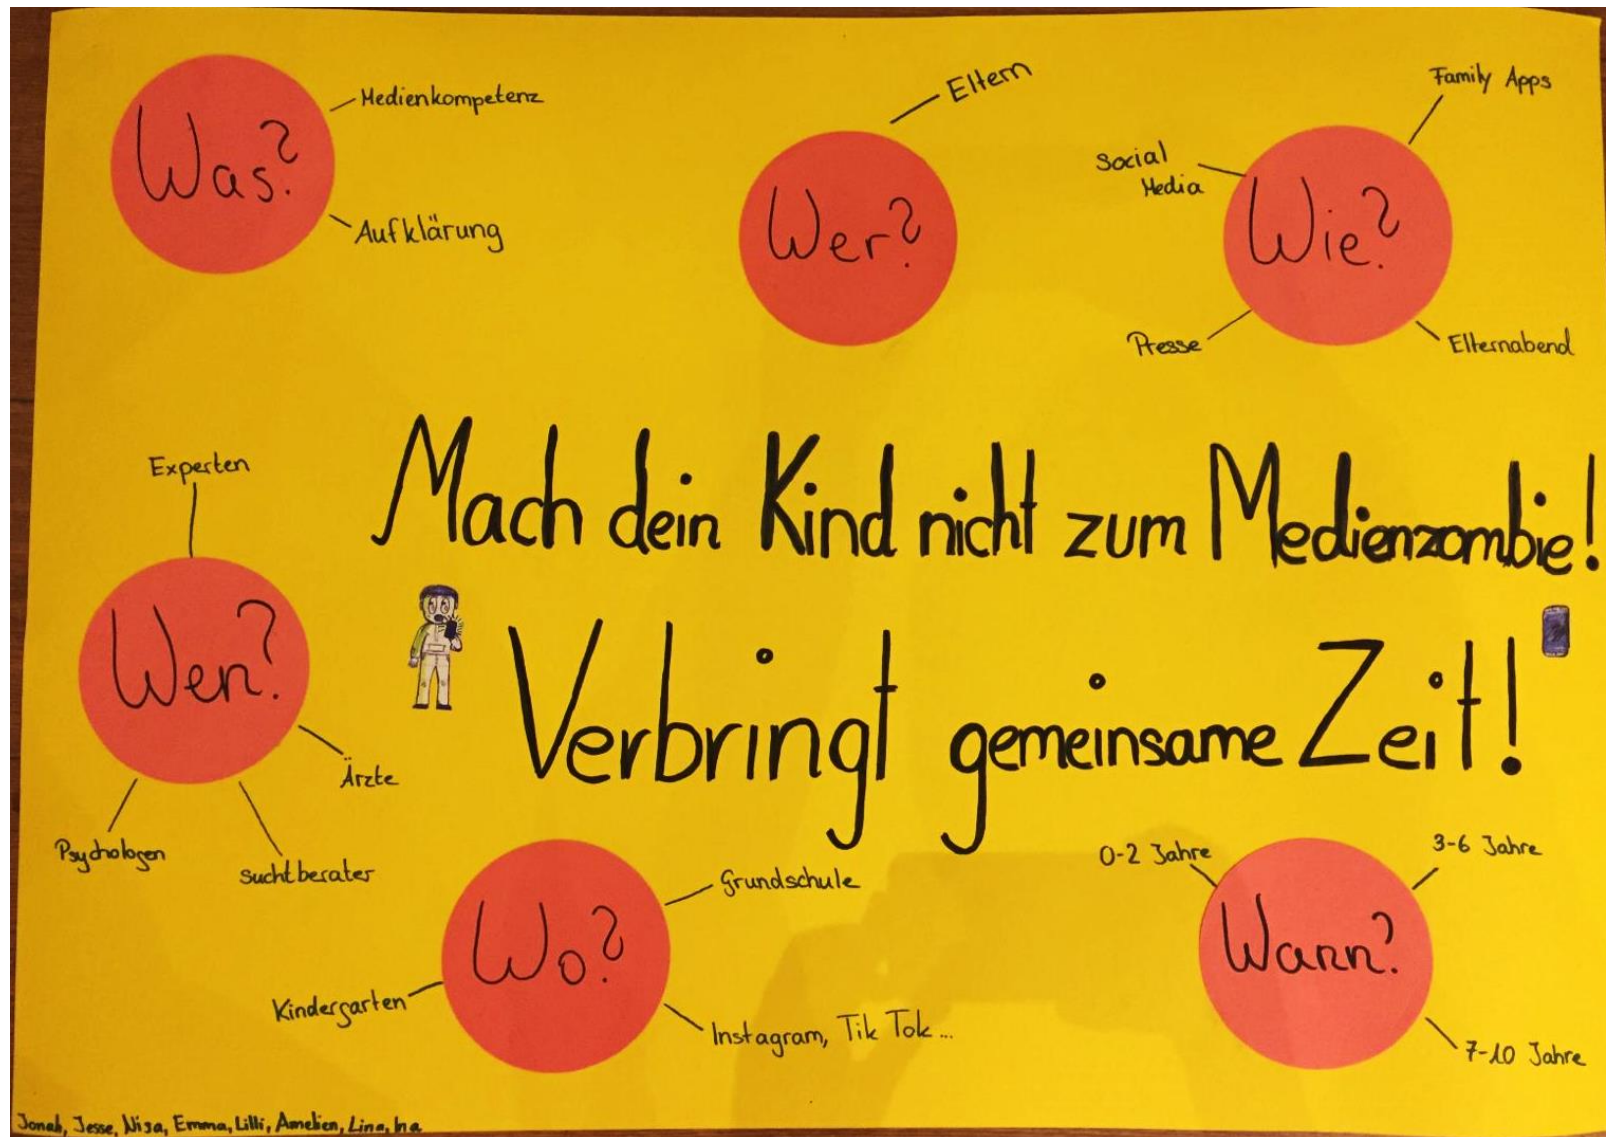 Was?
Medienkompetenz
Aufklärung
Wer?
Eltern
Wie?
Family Apps
Social
Media
Presse
Elternabend
Mach dein Kind nicht zum Medienzombie!
Verbringt gemeinsame Zeit!
Wen?
Experten
Ärzte
Psychologen
Suchtberater
Wo?
Grundschule
Kindergarten
Instagram, Tik Tok...
Wann?
0-2 Jahre
3-6 Jahre
7-10 Jahre
Jonah, Jesse, Nisa, Emma, Lilli, Amelien, Lina, Ina